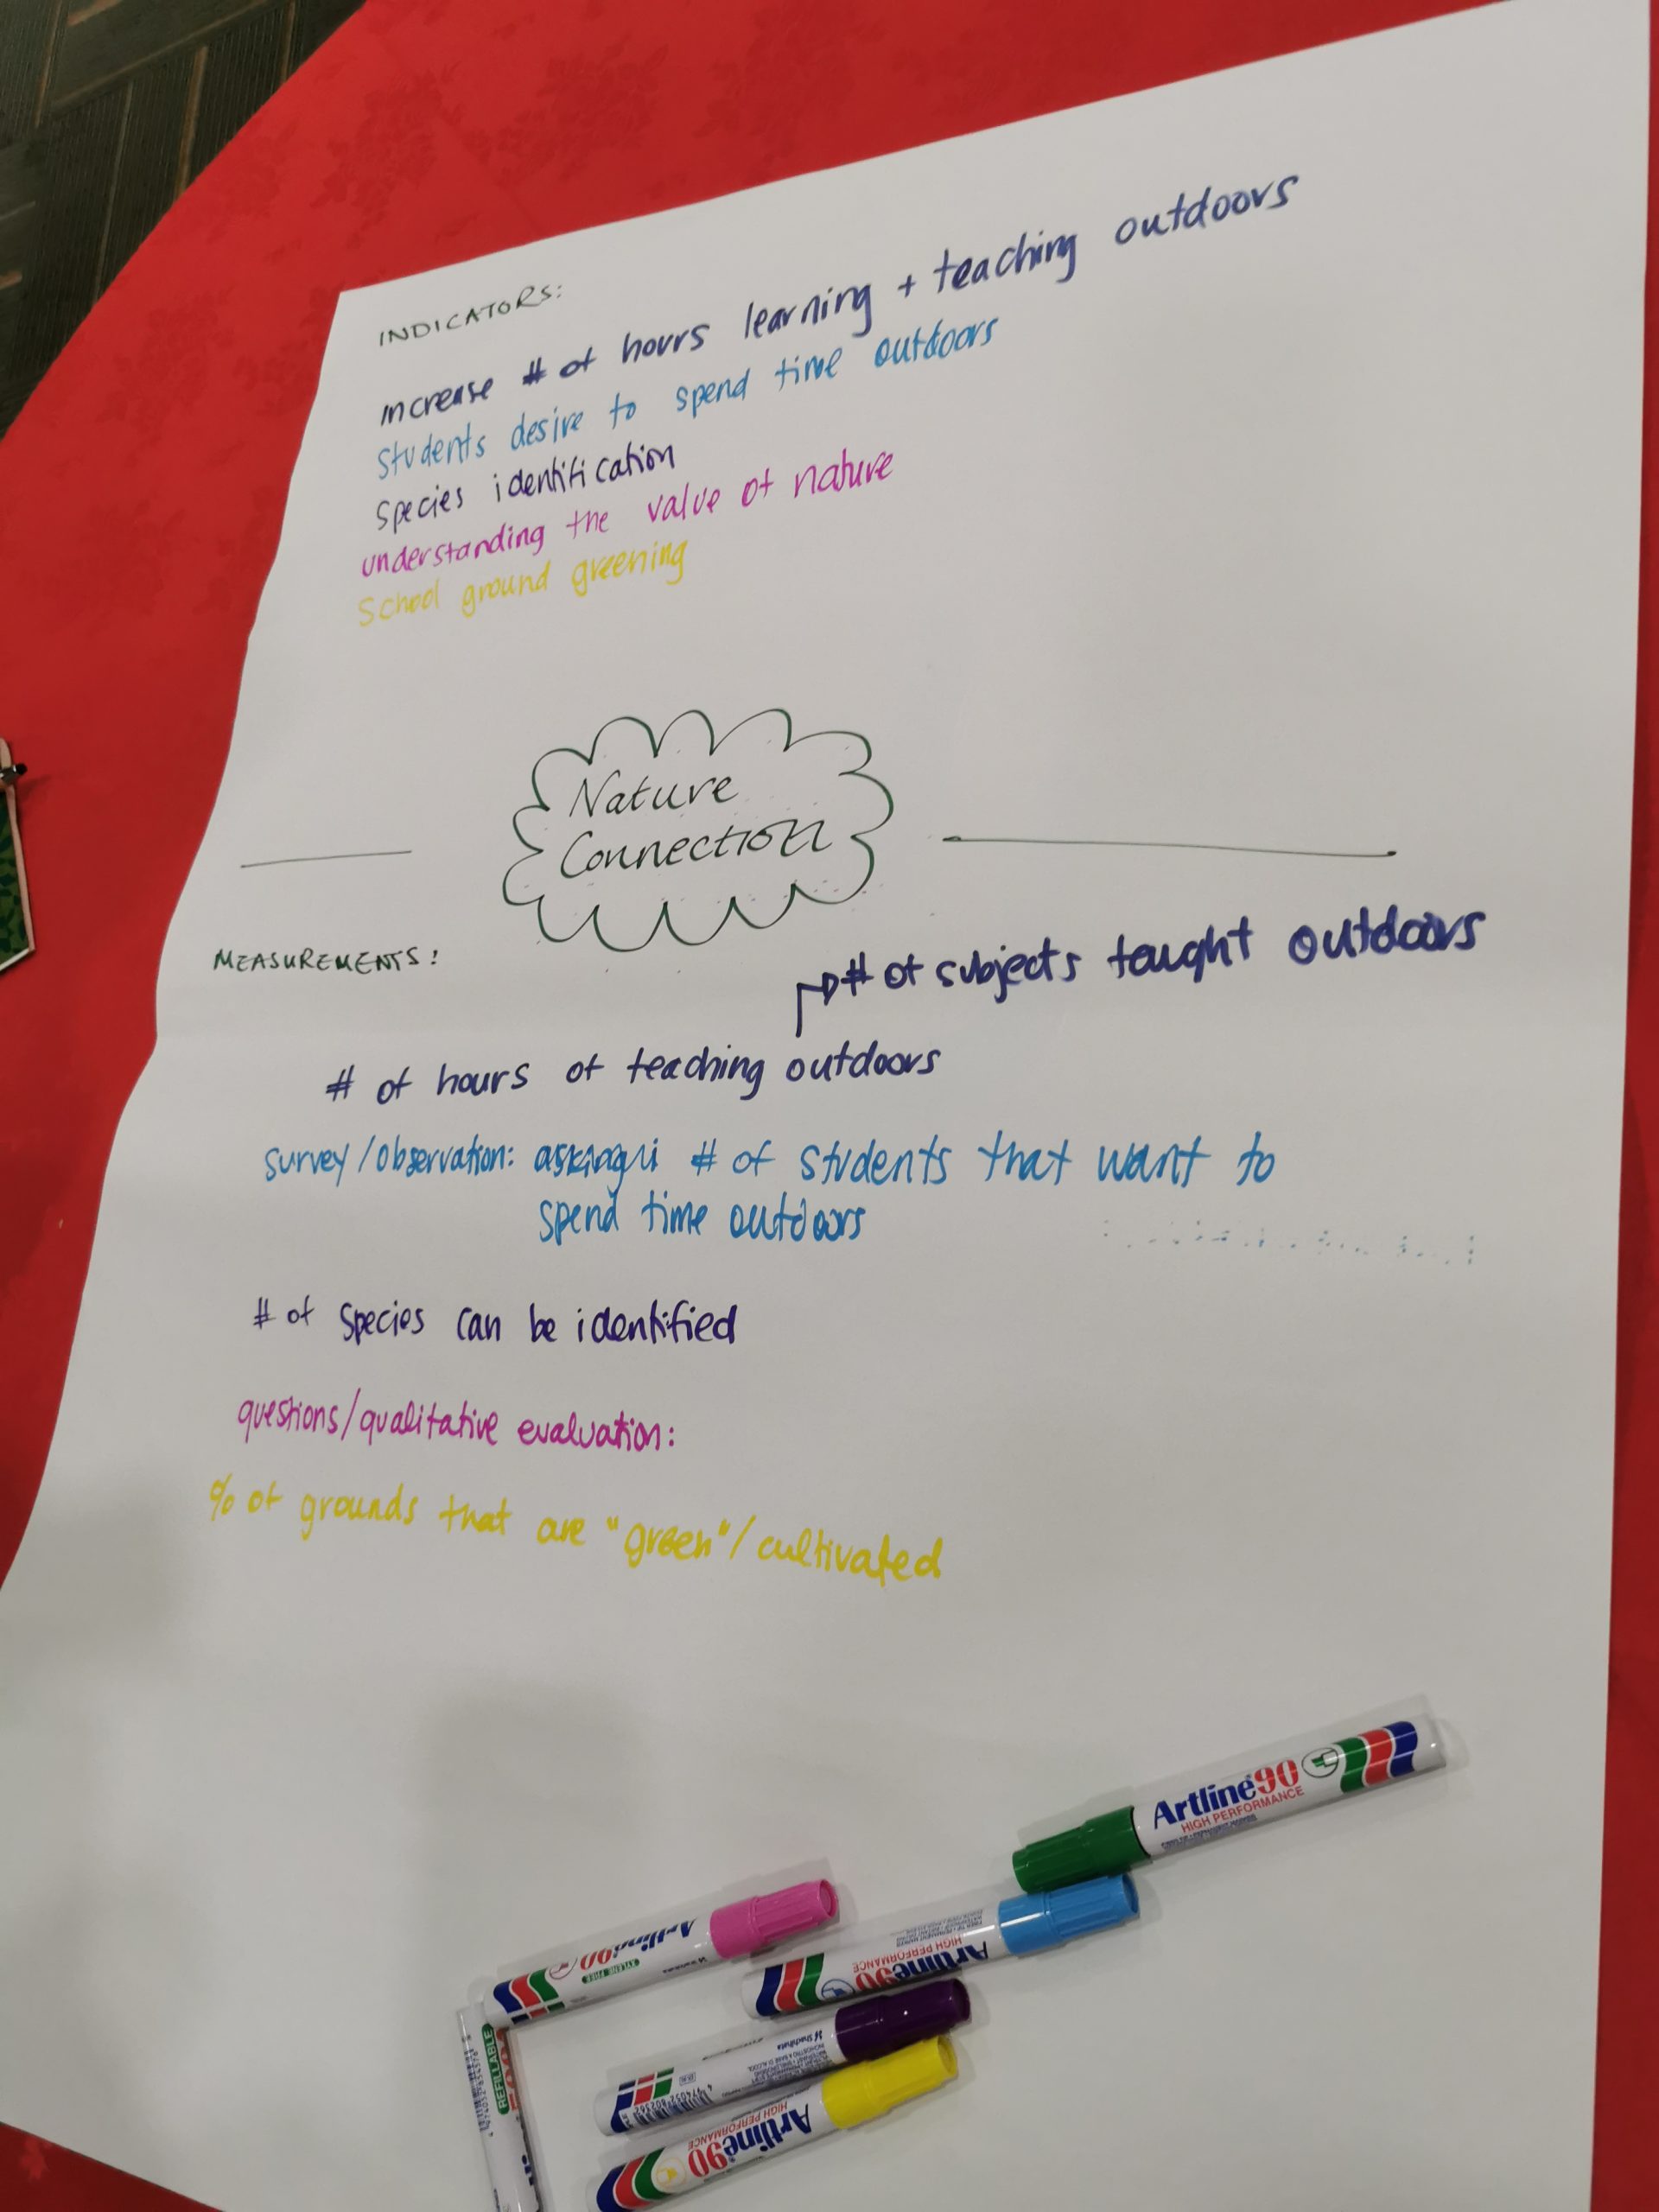 INDICATORS:
increase # of hours learning + teaching outdoors
students desire to spend time outdoors
species identification
understanding the value of nature
School ground greening
Nature
Connection
MEASUREMENTS:
# of subjects taught outdoors
# of hours of teaching outdoors
survey/observation: # of students that want to
spend time outdoors
# of species can be identified
questions/qualitative evaluation:
% of grounds that are "green"/cultivated
Artline 90
HIGH PERFORMANCE
Artline 90
XYLENE FREE
Artline 90
HIGH PERFORMANCE
Shachihata
Artline 90
HIGH PERFORMANCE
REFILLABLE